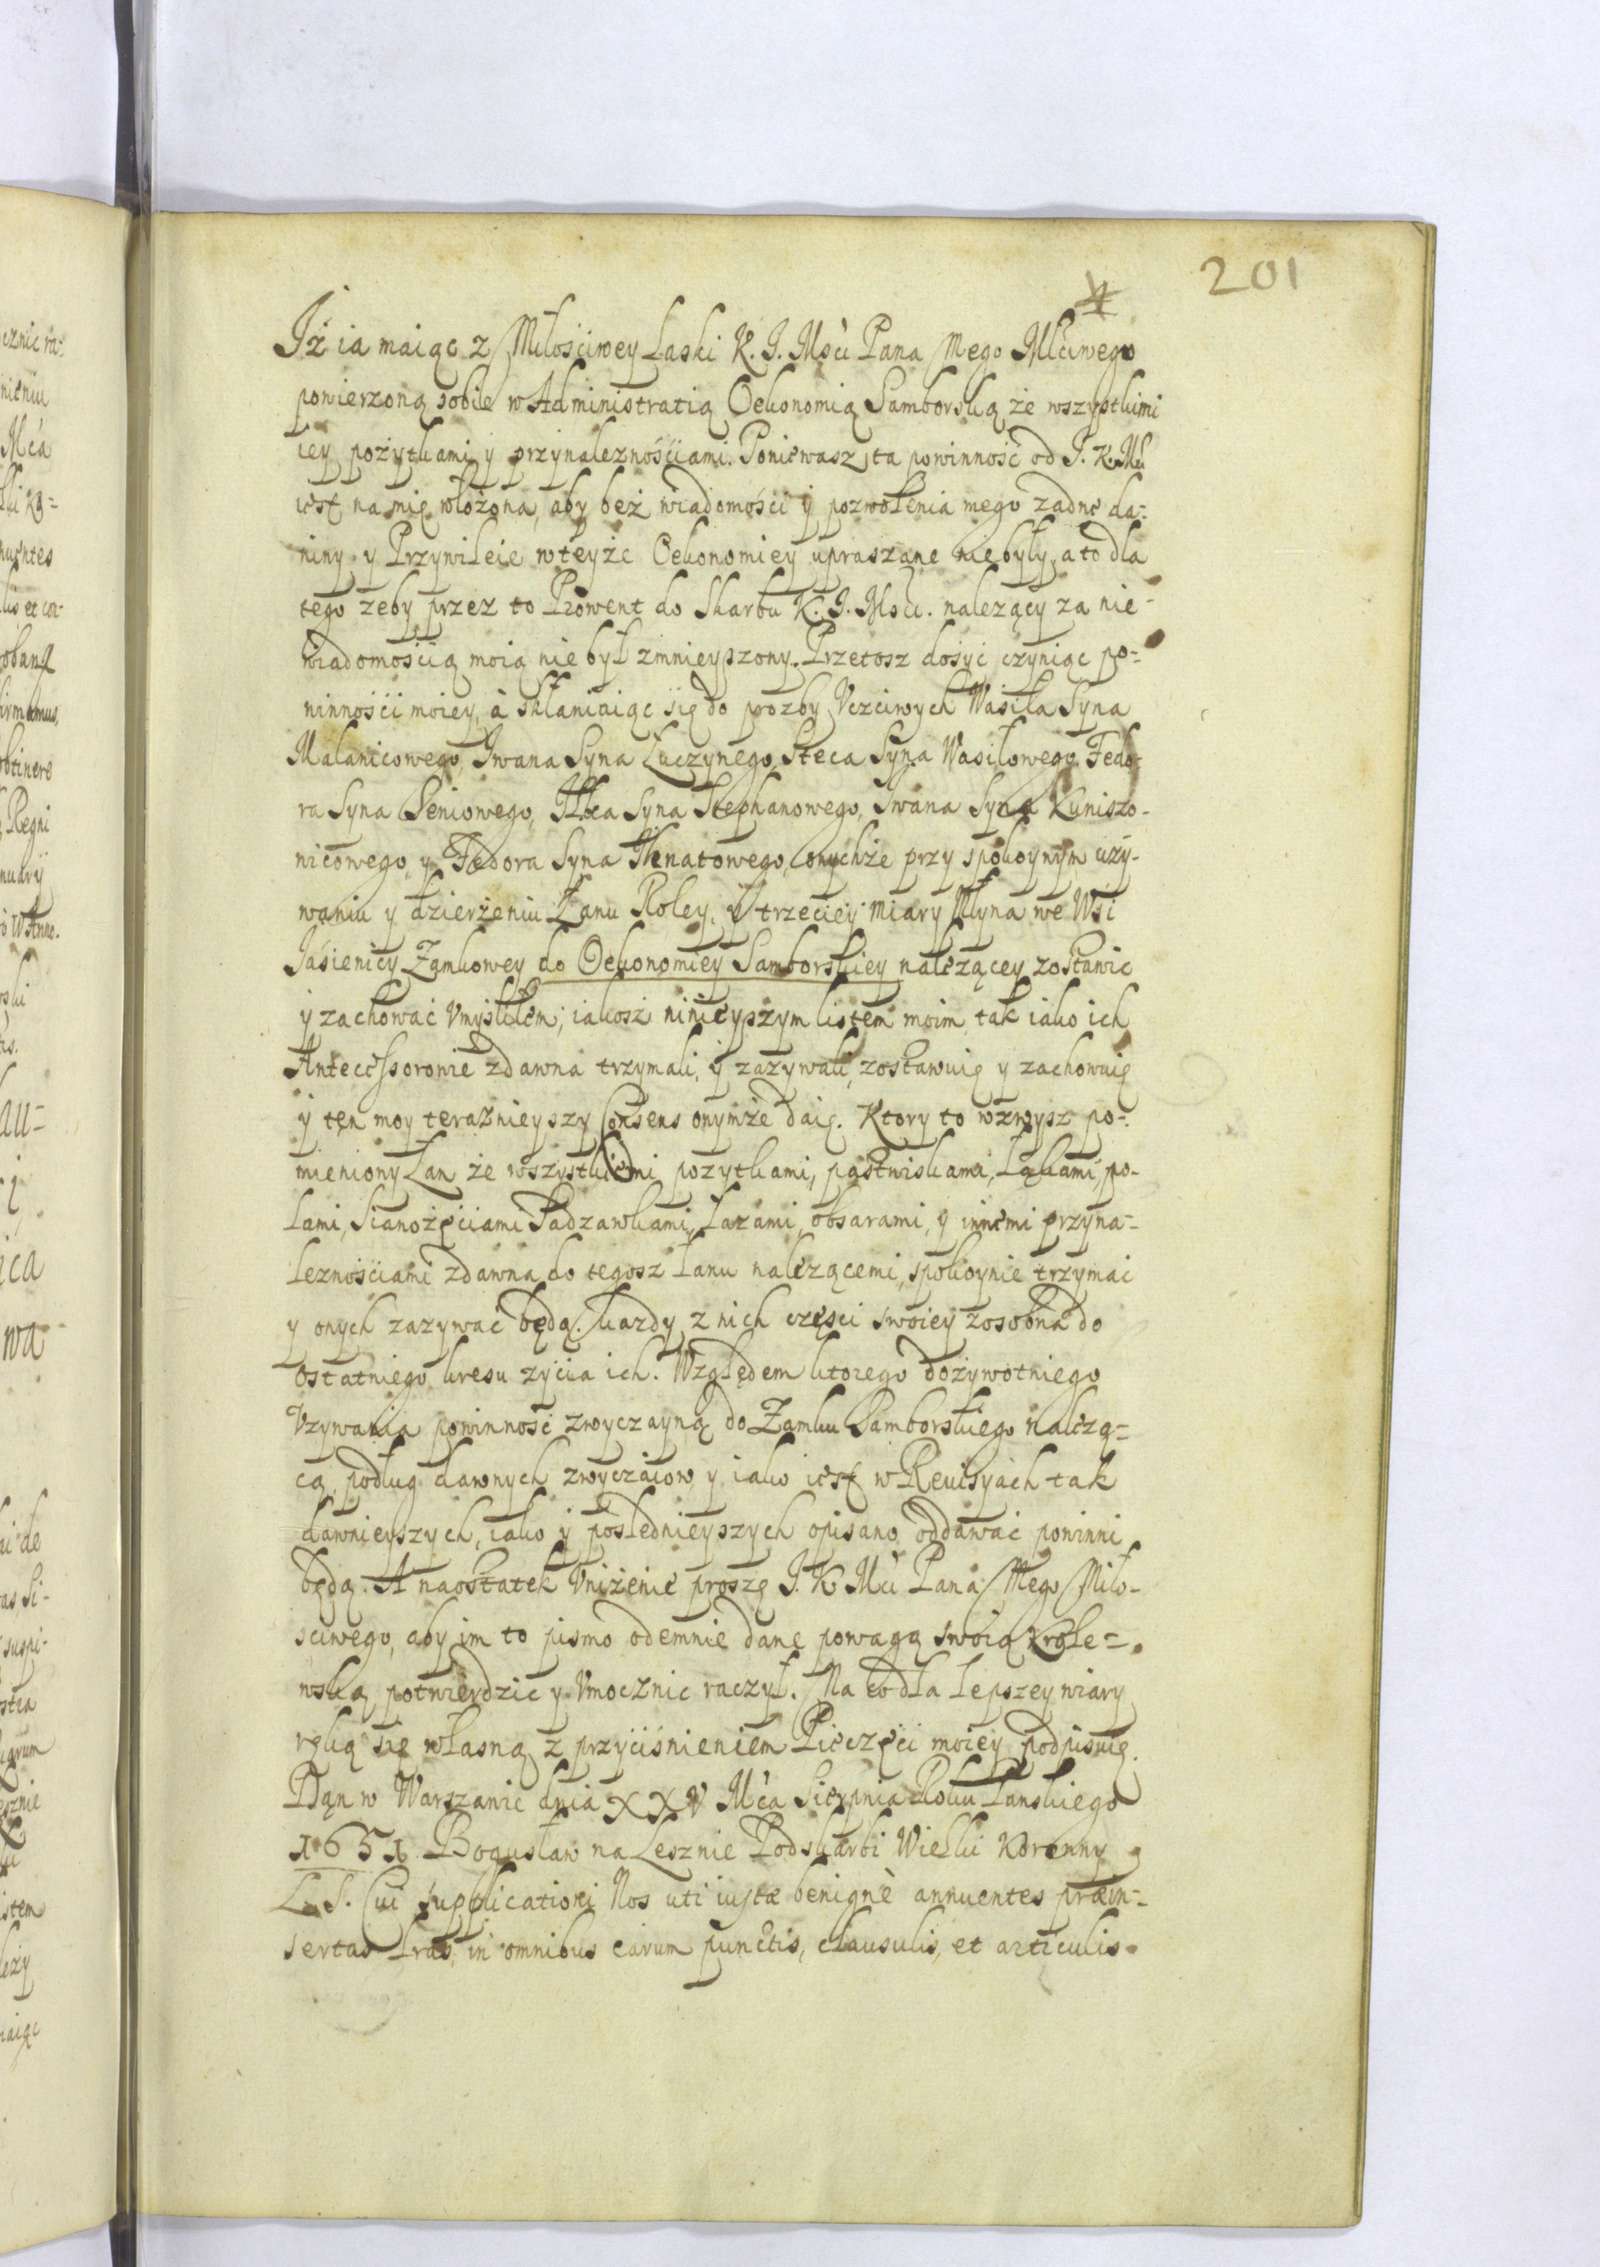 201
Iż ia maiąc z Miłościwey Łaski K. J. Mści Pana Mego Młciwego
powierzoną sobie w Administratią Oekonomią Samborską ze wszystkimi
iey pożytkami y przynależnościami. Ponieważ ta powinność od J. K. Mci
iest na mię włożona, aby beż wiadomości y pozwolenia mego żadne da-
niny y Przywileie w teyże Oekonomiey upraszane nie były, a to dla
tego żeby przez to Prowent do Skarbu K. J. Mści. należący za nie-
wiadomością moią nie był zmnieyszony. Przetosz dosyć czyniąc po-
winności moiey, à skłaniaiąc się do prozby Vczciwych Wasiła Syna
Malanicowego, Iwana Syna Łuczynego, Steca Syna Wasilowego, Fedo-
ra Syna Seniowego, Ilka Syna Stephanowego, Iwana Syna Kuniszo-
nicowego, y Fedora Syna Ihnatowego, onychże przy spokoynym uzy-
waniu y dzierżeniu Łanu Roley, y trzeciey miary Młyna we Wsi
Jasienicy Zamkowey do Oekonomiey Samborskiey należącey zostawic
y zachować Vmyśliłem; iakosz ninieyszym listem moim tak iako ich
Antecessorowie zdawna trzymali, y zazywali, zostawuię y zachowuię
y ten moy teraznieyszy Consens onymże daię. Ktory to wzwysz po-
mieniony Łan że wszystkiemi pozytkami, pastwiskami, Łąkami, po-
lami, Sianożęciami Sadzawkami, Łazami, obsarami, y innemi przyna-
leznościami zdawna do tegosz Łanu nalezącemi, spokoynie trzymać
y onych zazywac będą. Kazdy z nich częsci swoiey zosobna do
ostatniego kresu zycia ich. Względem ktorego dożywotniego
Vzywania powinność zwyczayną do Zamku Samborskiego nalezą-
cą, podług dawnych zwyczaiow y iako iest w Rewisyach tak
dawnieyszych, iako y poslednieyszych opisano, oddawać powinni
będą. A naostatek Vniżenie proszę J. K Mci Pana Mego Miło-
sciwego, aby im to pismo odemnie dane powagą swoią Krole-
wską potwierdzic y Vmocznic raczył. Na co dla lepszey wiary
ręką się własną z przyciśnieniem Pieczęci moiey podpisuię.
Dan w Warszawie dnia XXV Mca Sierpnia Roku Pańskiego
1651 Bogusław na Lesznie Podskarbi Wielki Koronny
L. S. Cui supplicationi Nos uti iustæ benignè annuentes præin-
sertas Lras, in omnibus earum punctis, clausulis, et articulis